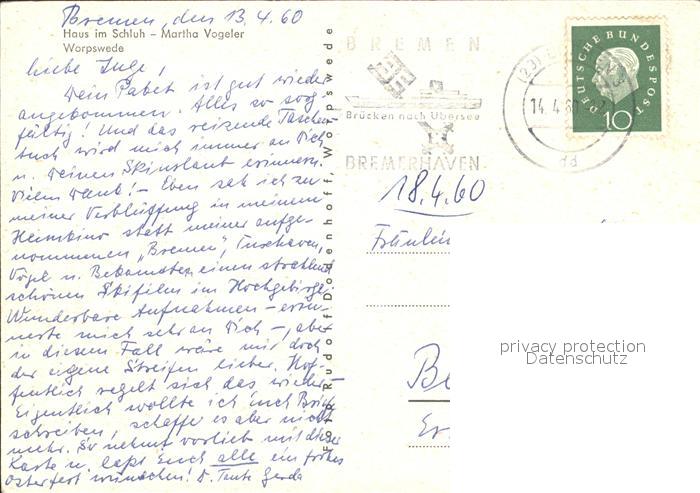 Bremen, den 13.4.60
Haus im Schluh – Martha Vogeler
Worpswede
liebe Inge,
Dein Paket ist gut wieder
angekommen. Alles so sorg-
fältig! Und das reizende Taschen-
tuch wird mich immer an Dich
u. Deinen Skiurlaub erinnern.
Vielen Dank! – Eben sah ich zu
meiner Verblüffung in meinem
Heimkino statt meiner aufge-
nommenen „Bremen", Cuxhaven,
Vögel u. Bekannten einen strahlend
schönen Skifilm im Hochgebirge.
Wunderbare Aufnahmen – erin-
nerte mich sehr an Dich –, aber
in diesem Fall wäre mir doch
der eigene Streifen lieber. Hof-
fentlich regelt sich das wieder –
Eigentlich wollte ich Euch Briefe
schreiben, schaffe es aber nicht
mehr. So nehmt vorlieb mit dieser
Karte u. laßt Euch alle ein frohes
Osterfest wünschen! D. Tante Gerda
Foto Rudolf Dodenhoff, Worpswede
BREMEN
Brücken nach Übersee
BREMERHAVEN
14.4.60
DEUTSCHE BUNDESPOST
10
18.4.60
Fräulein
privacy protection
Datenschutz